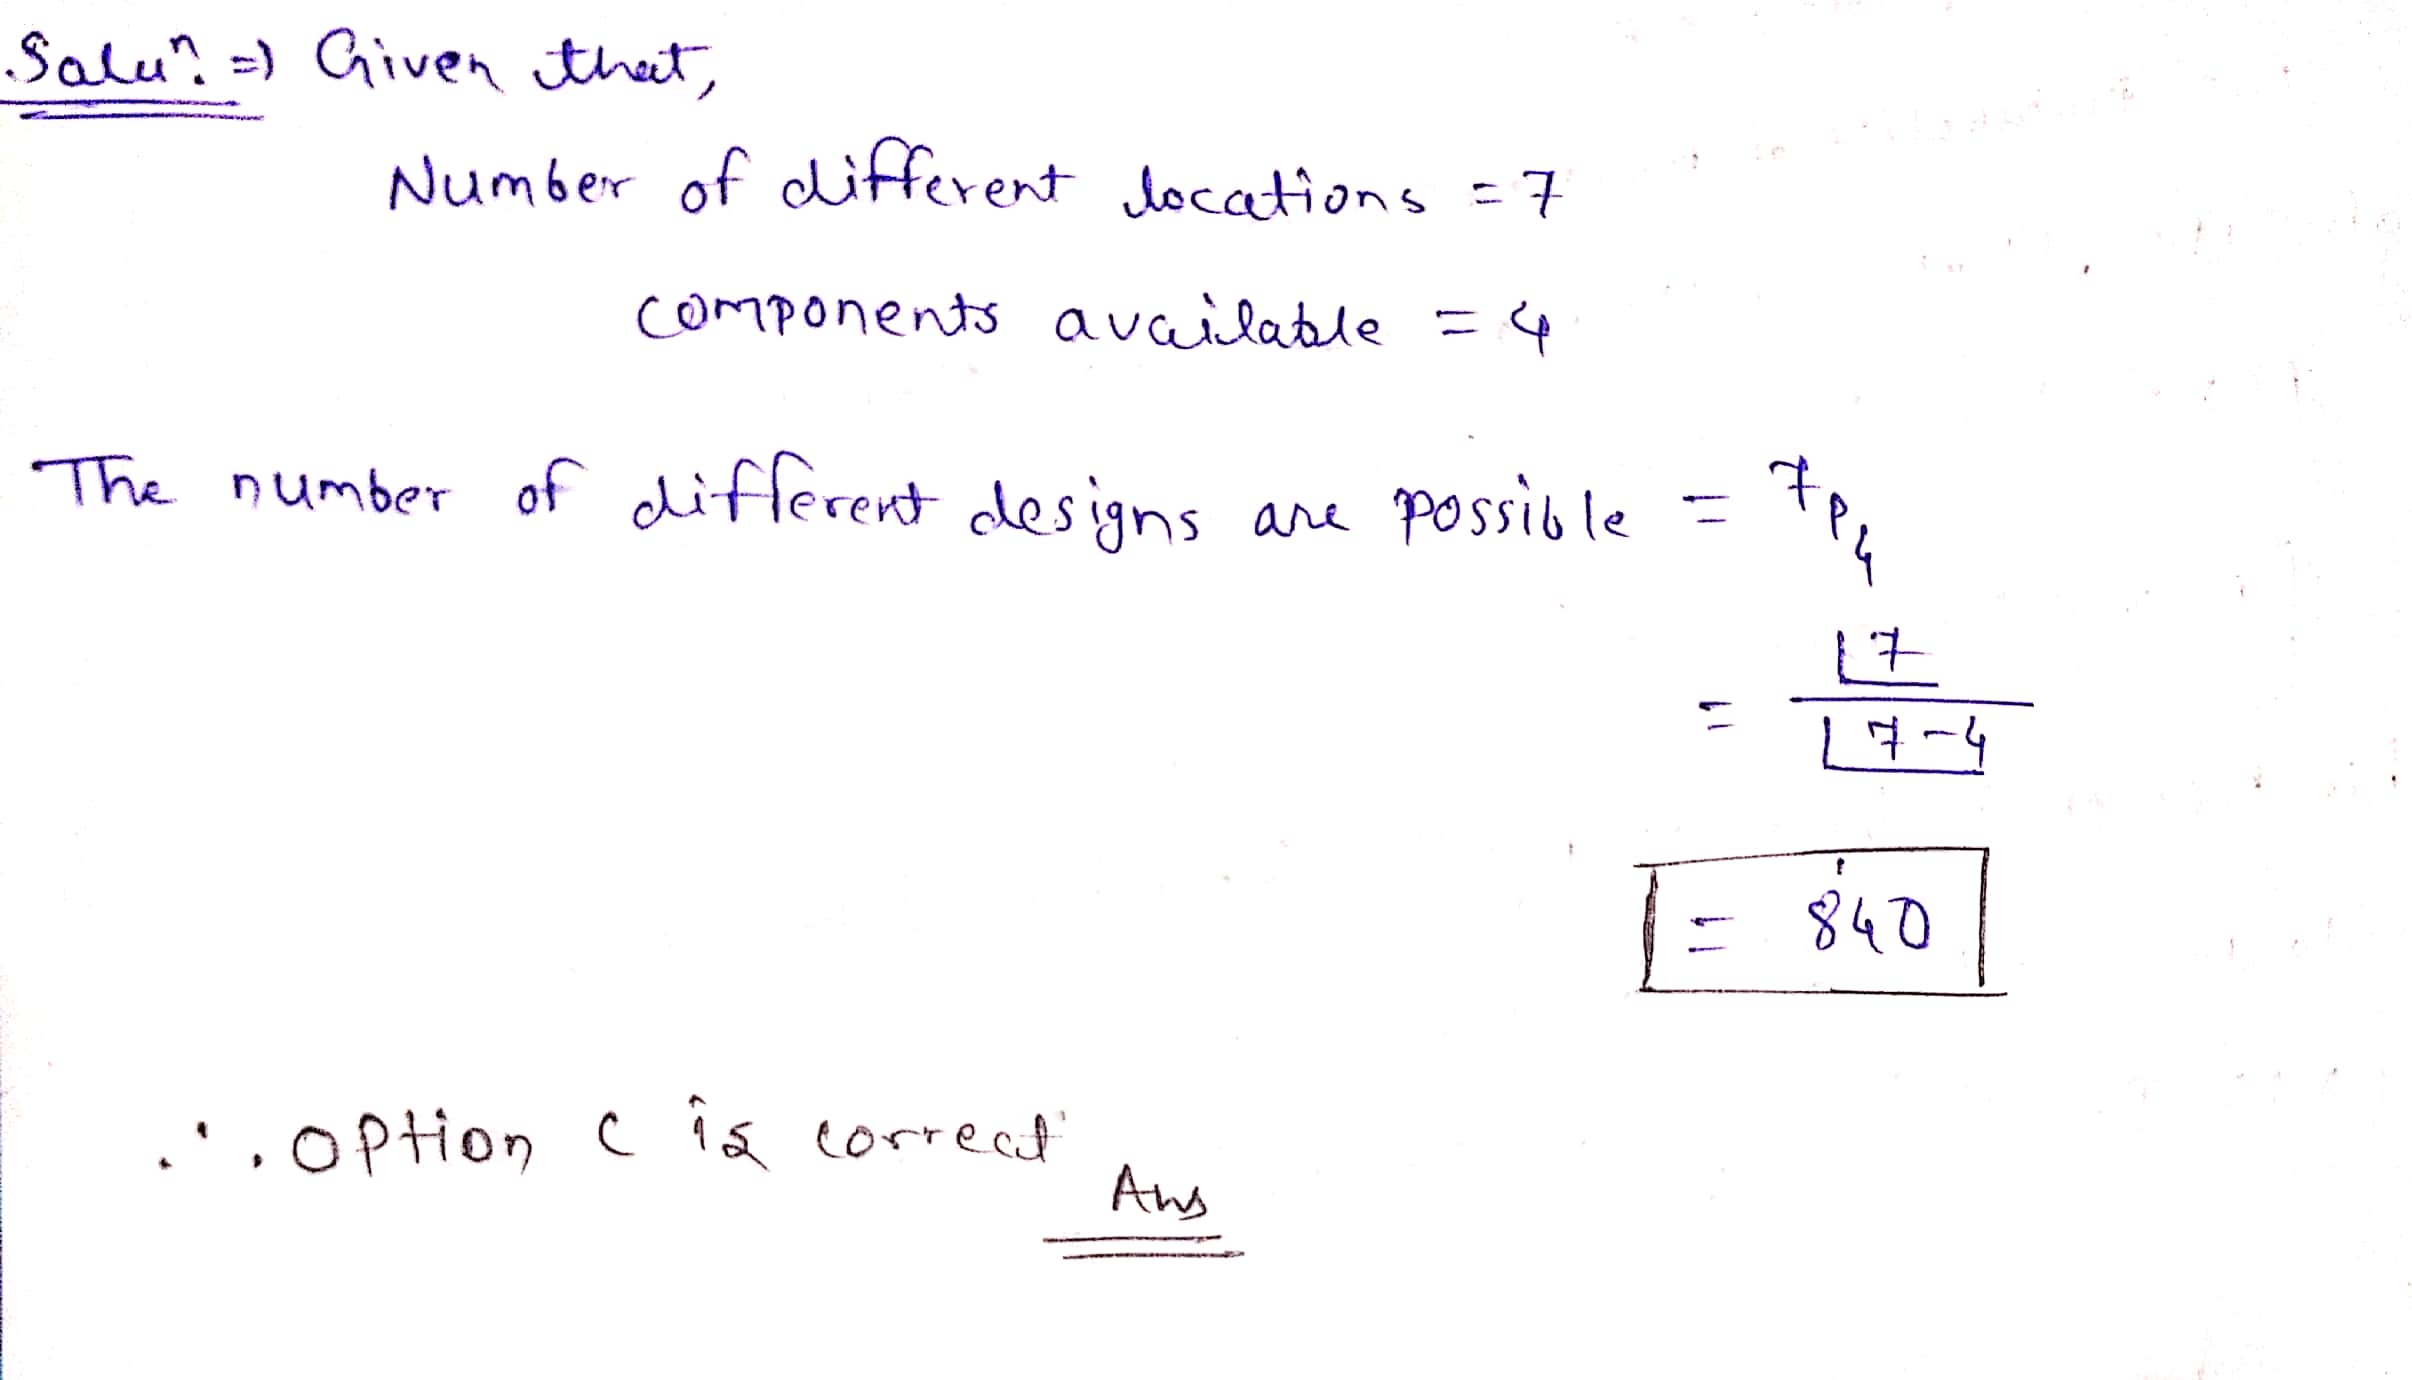 Soluⁿ. => Given that,
Number of different locations = 7
components available = 4
The number of different designs are possible = ⁷P₄
= ⌊7 / ⌊7-4
= 840
∴ option c is correct
Ans